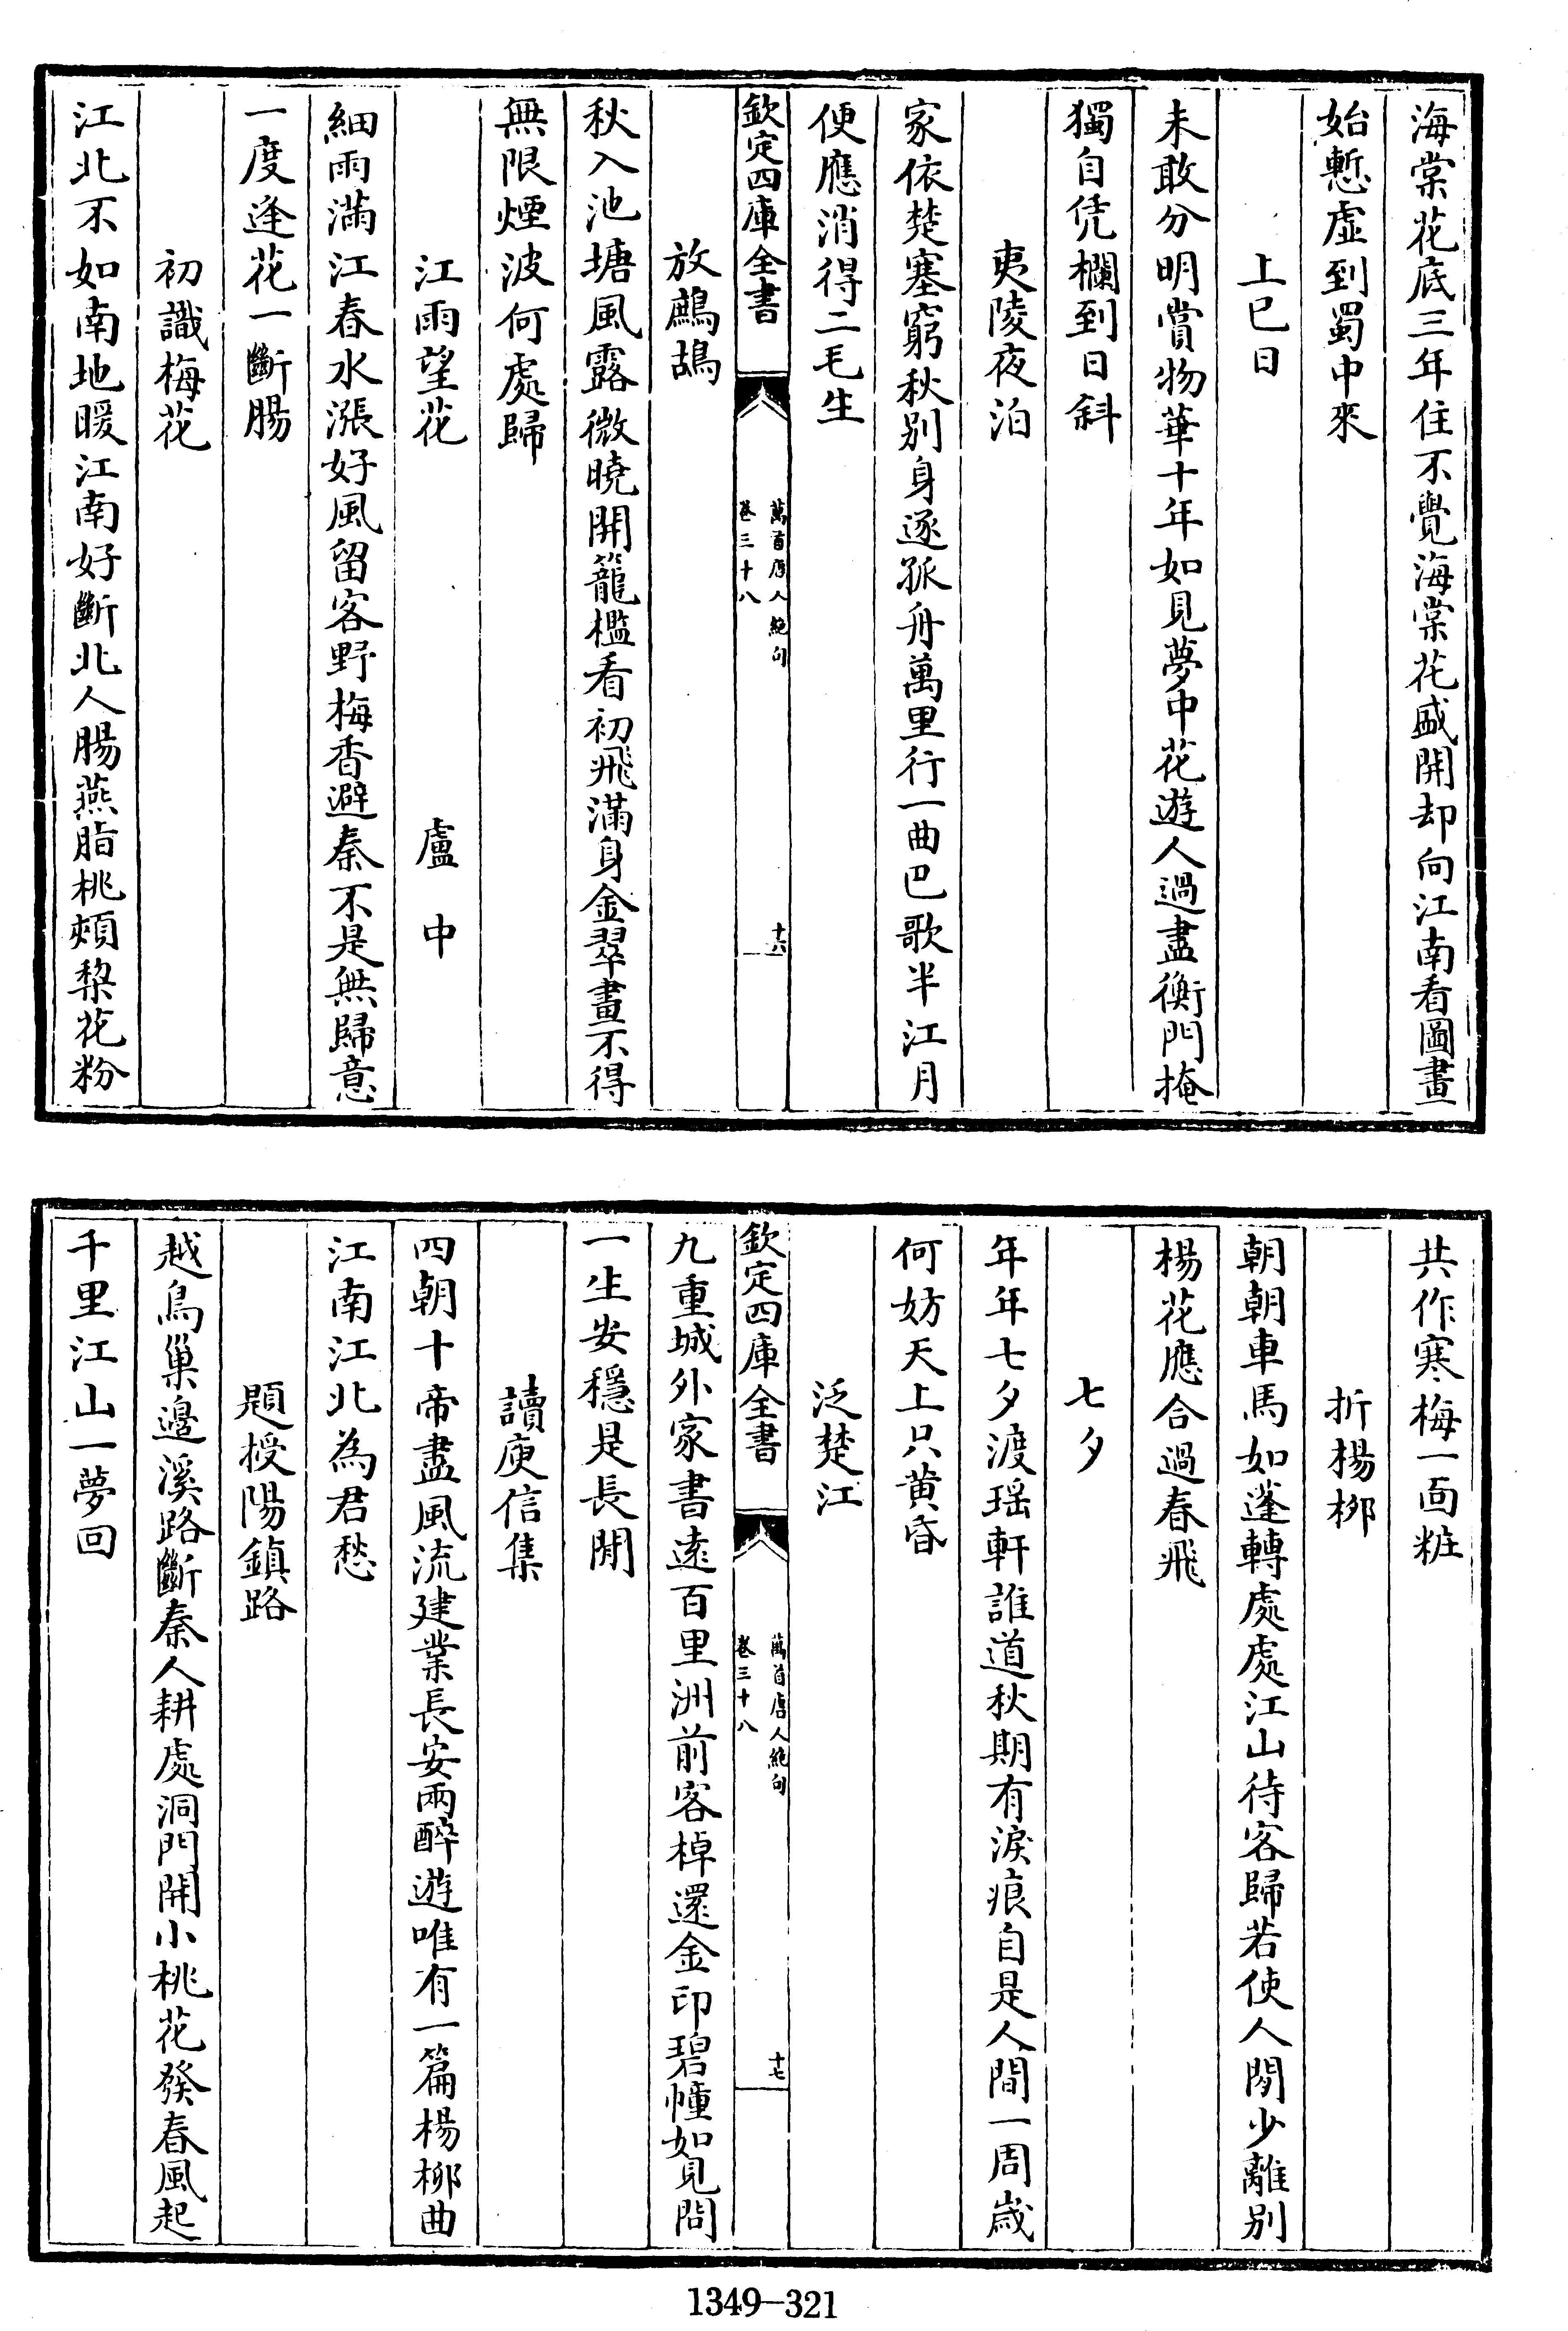 海棠花底三年住不覺海棠花盛開却向江南看圖畫
始慙虛到蜀中來
上巳日
未敢分明賞物華十年如見夢中花遊人過盡衡門掩
獨自凭欄到日斜
夷陵夜泊
家依楚塞窮秋別身逐孤舟萬里行一曲巴歌半江月
便應消得二毛生
欽定四庫全書
萬首唐人絶句
卷三十八
十六
放鷓鴣
秋入池塘風露微曉開籠檻看初飛滿身金翠畫不得
無限煙波何處歸
江雨望花 盧中
細雨滿江春水漲好風留客野梅香避秦不是無歸意
一度逢花一斷腸
初識梅花
江北不如南地暖江南好斷北人腸燕脂桃頰梨花粉
共作寒梅一面粧
折楊柳
朝朝車馬如蓬轉處處江山待客歸若使人間少離別
楊花應合過春飛
七夕
年年七夕渡瑶軒誰道秋期有淚痕自是人間一周歲
何妨天上只黄昏
泛楚江
欽定四庫全書
萬首唐人絶句
卷三十八
十七
九重城外家書遠百里洲前客棹還金印碧幢如見問
一生安穩是長閒
讀庾信集
四朝十帝盡風流建業長安兩醉遊唯有一篇楊柳曲
江南江北為君愁
題授陽鎮路
越鳥巢邊溪路斷秦人耕處洞門開小桃花發春風起
千里江山一夢回
1349-321